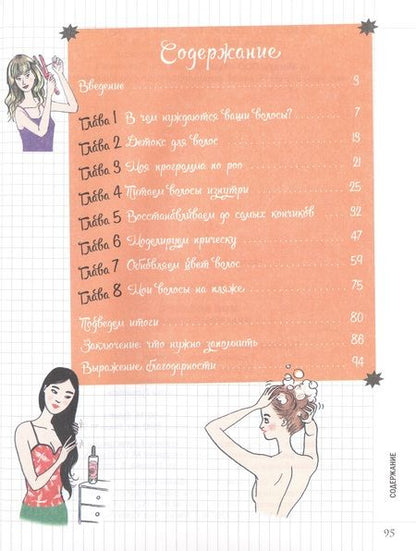 Содержание
Введение 3
Глава 1 В чем нуждаются ваши волосы? 7
Глава 2 Детокс для волос 13
Глава 3 Моя программа no poo 21
Глава 4 Питаем волосы изнутри 25
Глава 5 Восстанавливаем до самых кончиков 32
Глава 6 Моделируем прическу 47
Глава 7 Обновляем цвет волос 59
Глава 8 Мои волосы на пляже 75
Подведем итоги 80
Заключение: что нужно запомнить 86
Выражение благодарности 94
СОДЕРЖАНИЕ
95